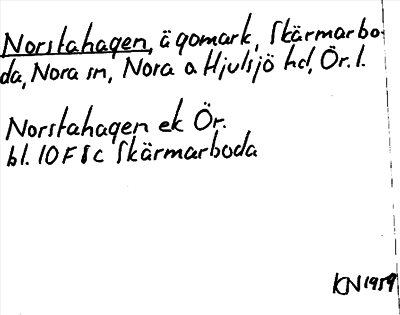 Norstahagen, ägomark, Skärmarbo-
da, Nora sn, Nora o Hjulsjö hd, Ör. l.
Norstahagen ek Ör.
bl. 10F 8c Skärmarboda
KN 1959